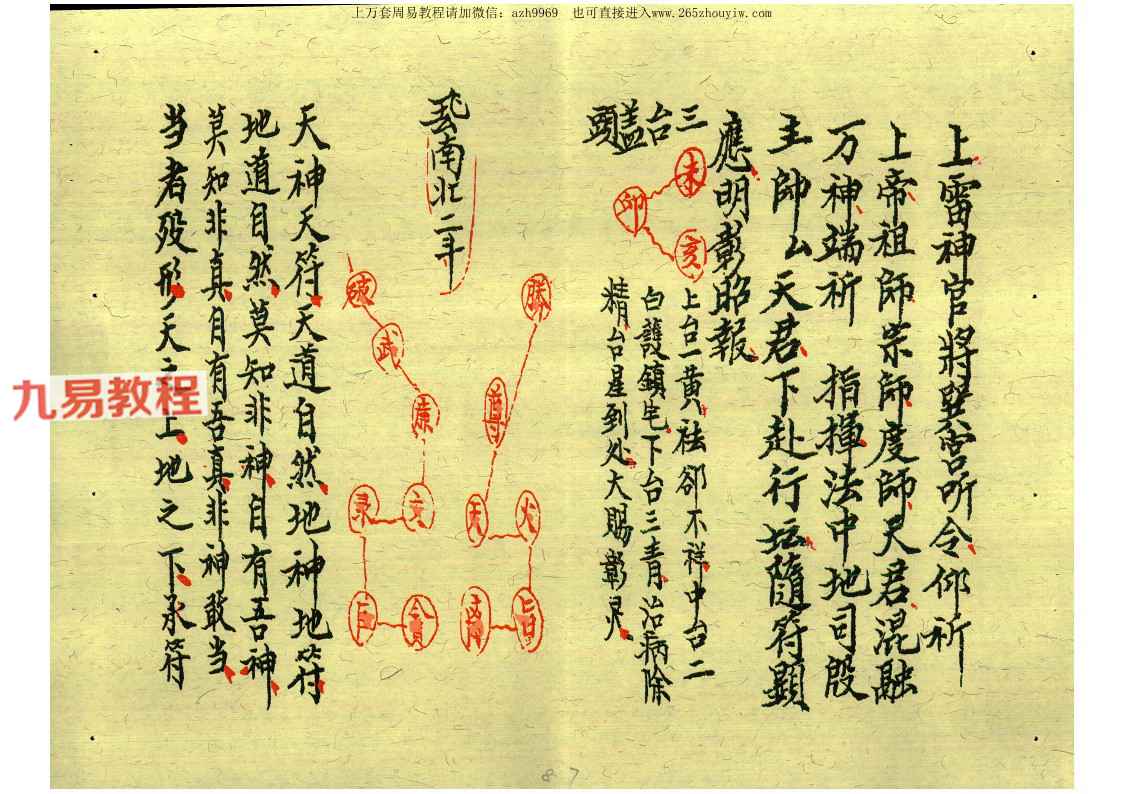 上万套周易教程请加微信：azh9969　也可直接进入www.265zhouyiw.com
上雷神官將 听令仰祈
上帝祖師宗師度師天君混融
万神端祈　指揮法中地司殷
主帥厶天君下赴行坛隨符顯
應明彰昭報
三台盖頭
未
卯
亥
上台一黄祛 不祥中台二
白護鎮宅下台三青治病除
精台星到处大賜彰灵
南北二斗
破
武
廉
文
录
巨
貪
勝
尊
天
火
天神天符天道自然地神地符
地道自然莫知非神自有吾神
莫知非真自有吾真非神敢当
当者殁形天之上地之下承符
九易教程
87